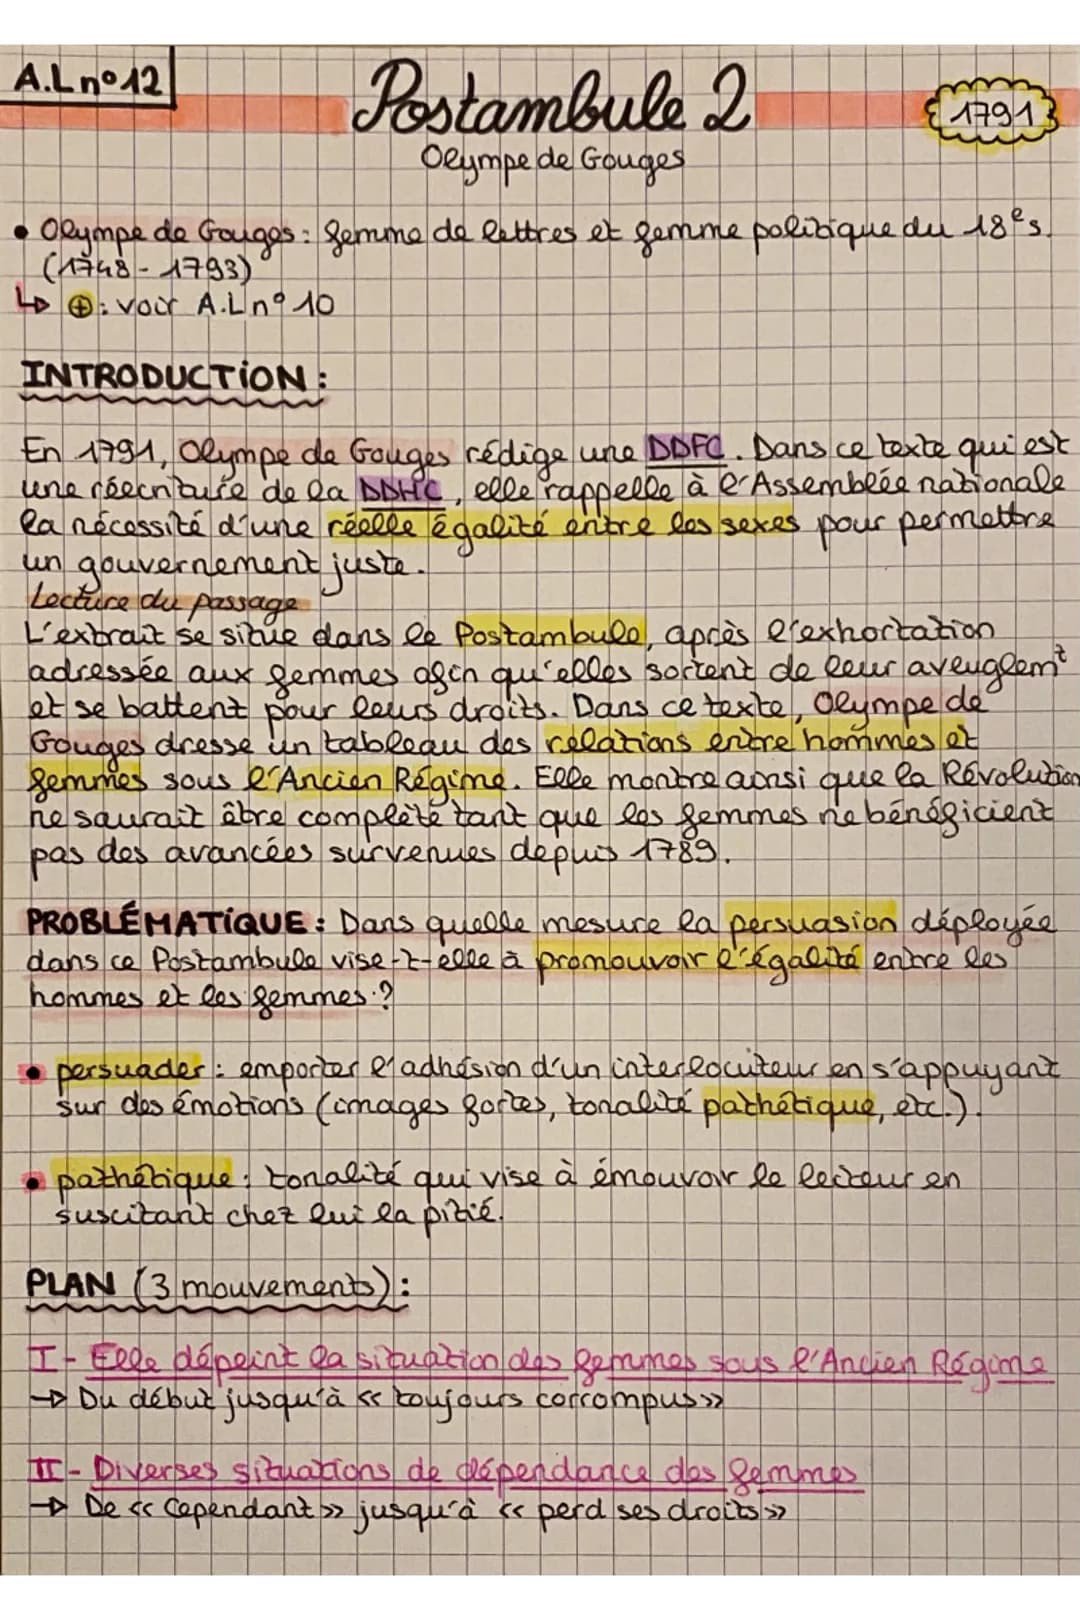 A.L n°12
Postambule 2
1791
Olympe de Gouges
• Olympe de Gouges : femme de lettres et femme politique du 18es.
(1748 - 1793)
↳ ⊕ : voir A.L n° 10
INTRODUCTION :
En 1791, Olympe de Gouges rédige une DDFC. Dans ce texte qui est
une réécriture de la DDHC, elle rappelle à l'Assemblée nationale
la nécessité d'une réelle égalité entre les sexes pour permettre
un gouvernement juste.
Lecture du passage
L'extrait se situe dans le Postambule, après l'exhortation
adressée aux femmes afin qu'elles sortent de leur aveuglemt
et se battent pour leurs droits. Dans ce texte, Olympe de
Gouges dresse un tableau des relations entre hommes et
femmes sous l'Ancien Régime. Elle montre ainsi que la Révolution
ne saurait être complète tant que les femmes ne bénéficient
pas des avancées survenues depuis 1789.
PROBLÉMATIQUE : Dans quelle mesure la persuasion déployée
dans ce Postambule vise-t-elle à promouvoir l'égalité entre les
hommes et les femmes ?
• persuader : emporter l'adhésion d'un interlocuteur en s'appuyant
sur des émotions (images fortes, tonalité pathétique, etc.).
• pathétique : tonalité qui vise à émouvoir le lecteur en
suscitant chez lui la pitié.
PLAN (3 mouvements) :
I - Elle dépeint la situation des femmes sous l'Ancien Régime
→ Du début jusqu'à « toujours corrompus »
II - Diverses situations de dépendance des femmes
→ De « Cependant » jusqu'à « perd ses droits »